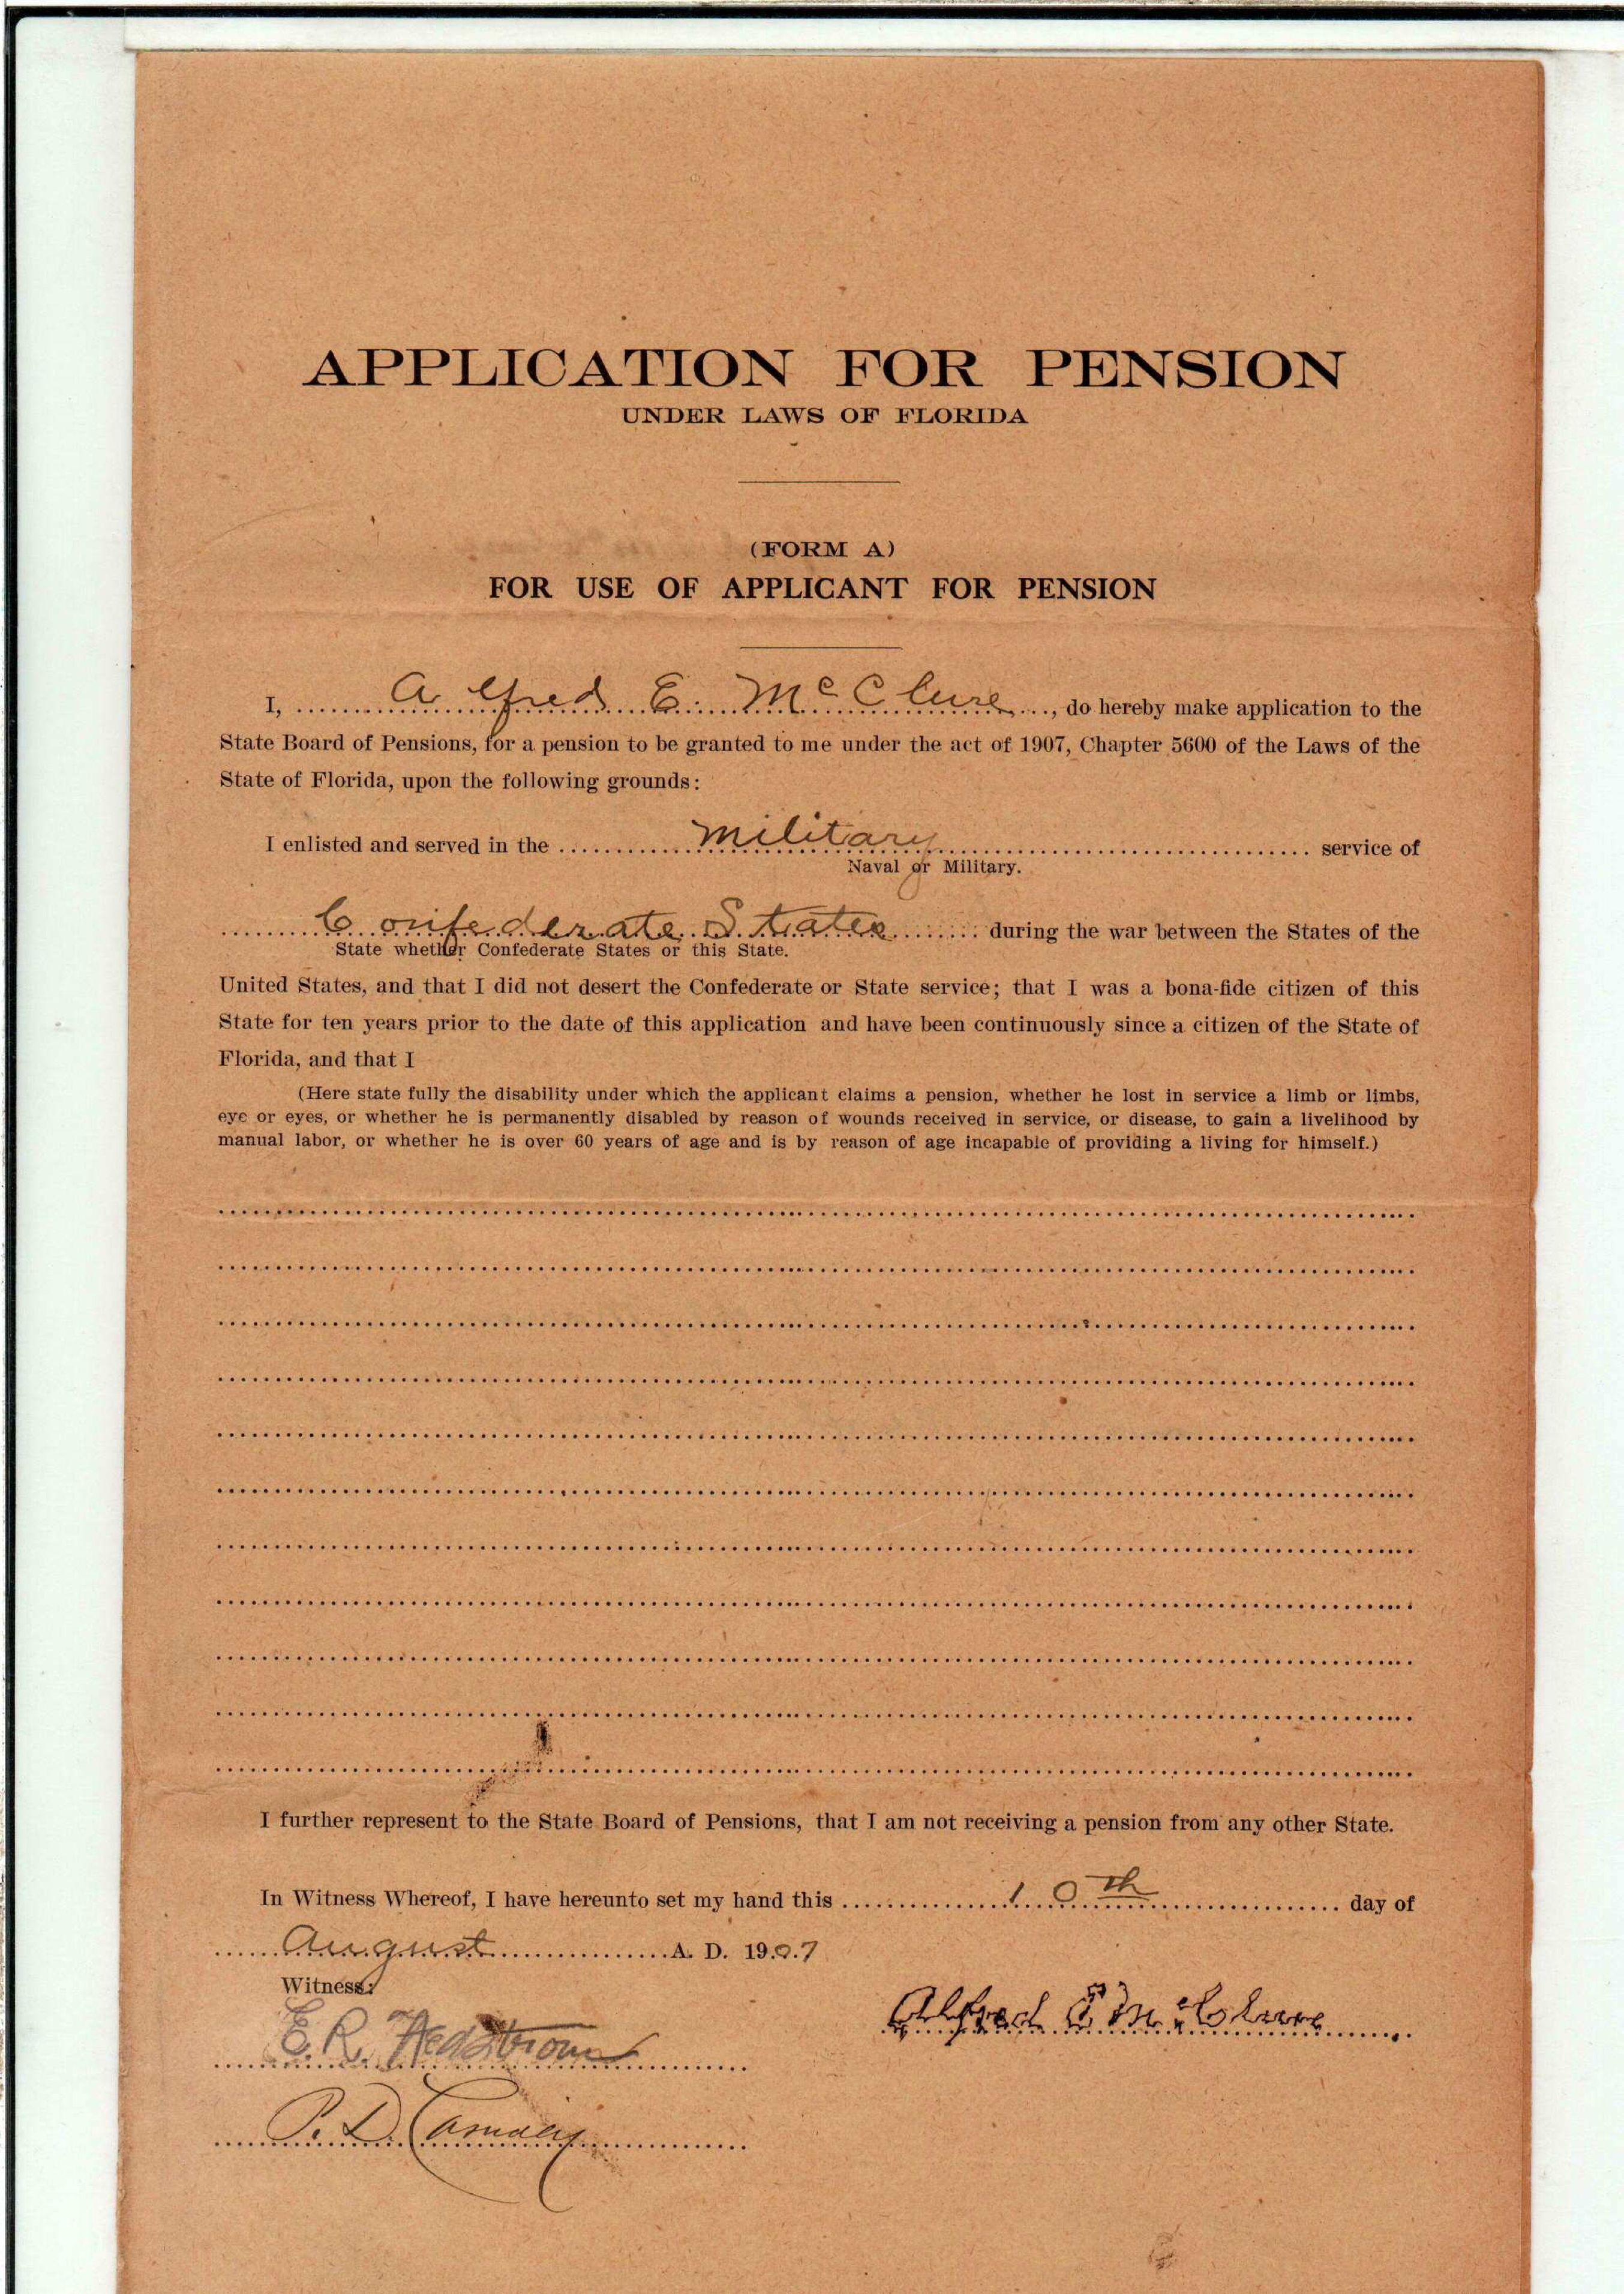 APPLICATION FOR PENSION
UNDER LAWS OF FLORIDA
(FORM A)
FOR USE OF APPLICANT FOR PENSION
I, Alfred E. McClure, do hereby make application to the
State Board of Pensions, for a pension to be granted to me under the act of 1907, Chapter 5600 of the Laws of the
State of Florida, upon the following grounds:
I enlisted and served in the military service of
Naval or Military.
Confederate States during the war between the States of the
State whether Confederate States or this State.
United States, and that I did not desert the Confederate or State service; that I was a bona-fide citizen of this
State for ten years prior to the date of this application and have been continuously since a citizen of the State of
Florida, and that I
(Here state fully the disability under which the applicant claims a pension, whether he lost in service a limb or limbs,
eye or eyes, or whether he is permanently disabled by reason of wounds received in service, or disease, to gain a livelihood by
manual labor, or whether he is over 60 years of age and is by reason of age incapable of providing a living for himself.)
I further represent to the State Board of Pensions, that I am not receiving a pension from any other State.
In Witness Whereof, I have hereunto set my hand this 10th day of
August A. D. 1907
Witness:
Alfred E McClure
E. R. Hedstrom
P. D.